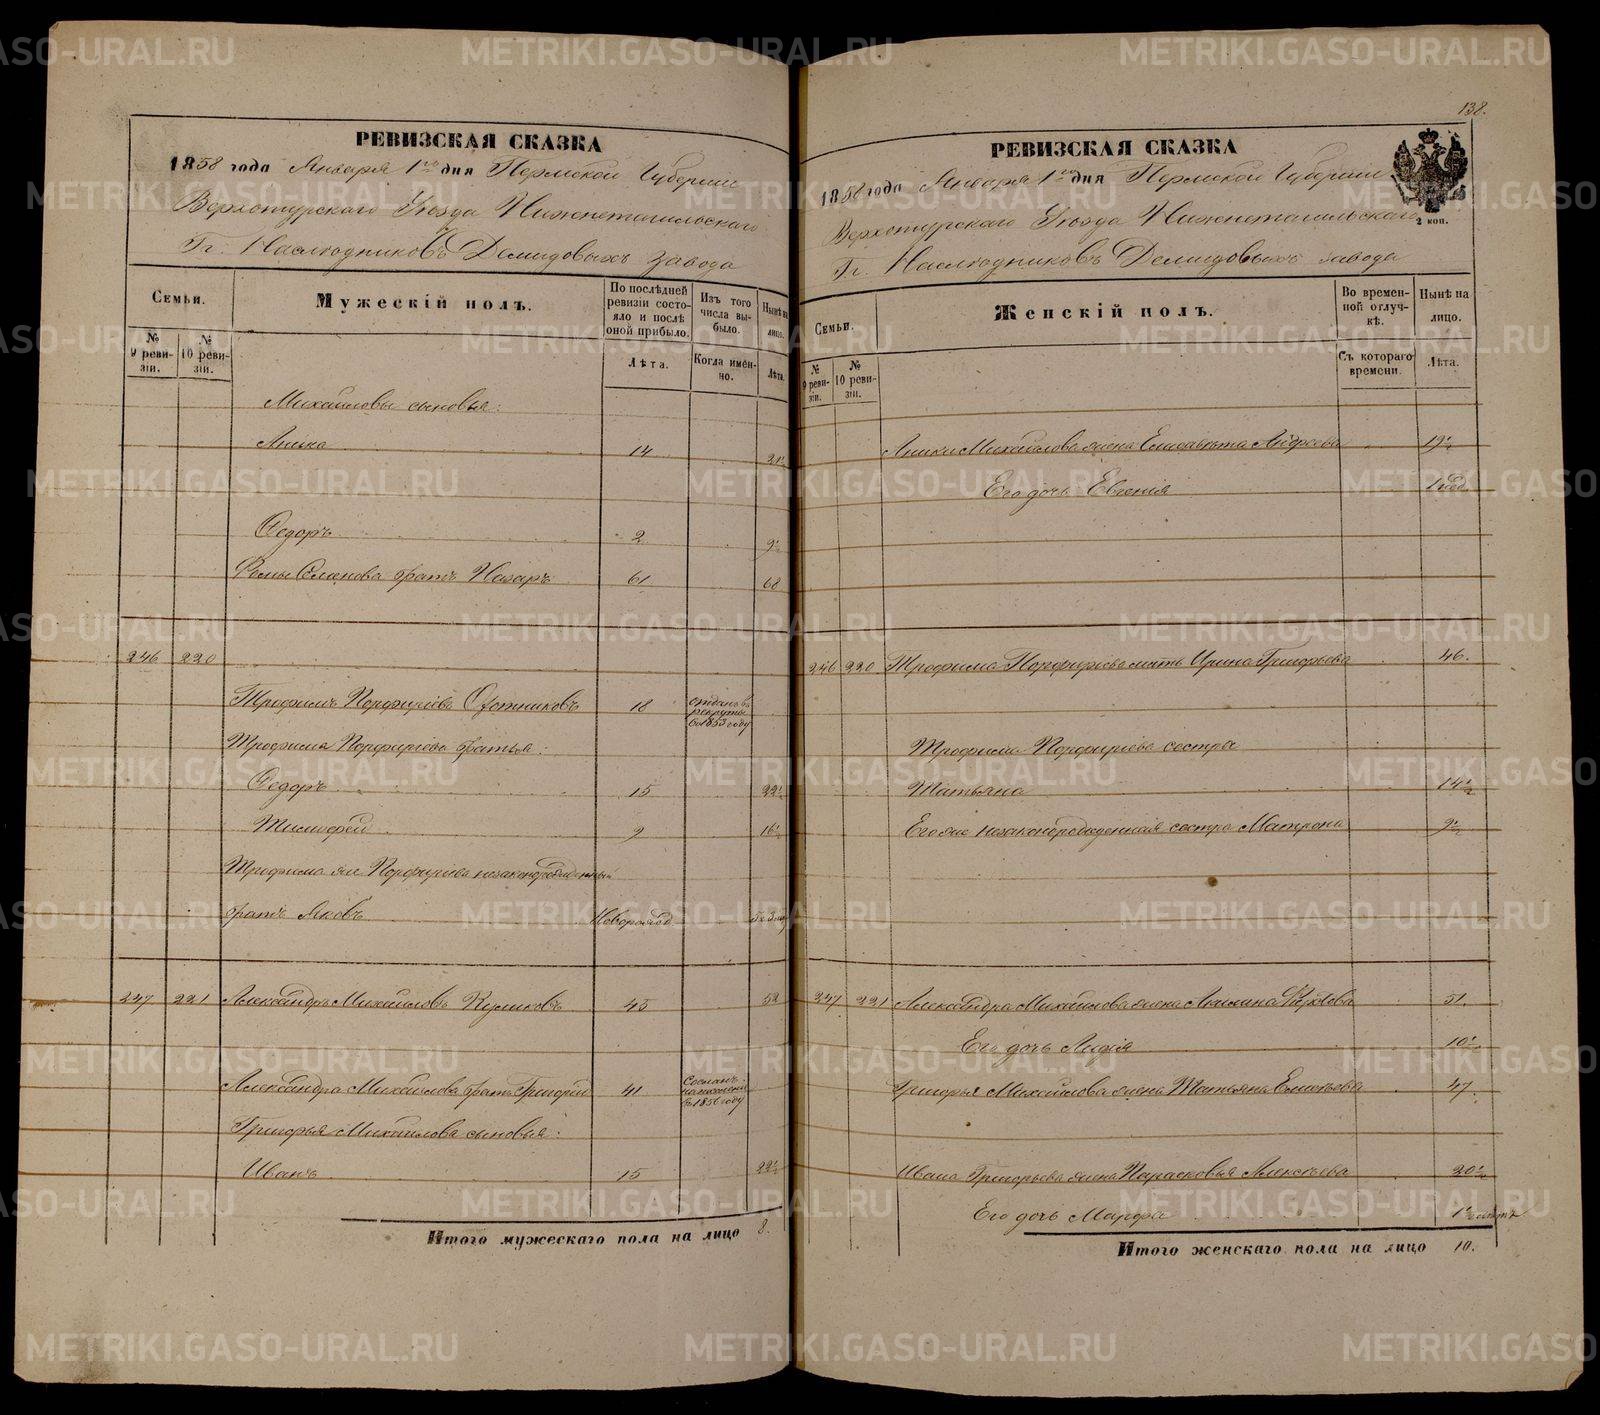 138.
РЕВИЗСКАЯ СКАЗКА
1858 года Января 1го дня Пермской Губернии
Верхотурскаго Уезда Нижнетагильскаго
Гг. Наследниковъ Демидовыхъ завода
Семьи.
№ 9 ревизіи.
№ 10 ревизіи.
Мужескій полъ.
По послѣдней ревизіи состояло и послѣ оной прибыло.
Лѣта.
Изъ того числа выбыло.
Когда именно.
Нынѣ на лицо.
Лѣта.
Михайловы сыновья:
Аника 14 21½
Федоръ 2 9½
Фомы Семенова братъ Назаръ 61 68
246 220
Трофимъ Порфирьевъ Охотниковъ 18 отданъ въ рекруты въ 1853 году
Трофима Порфирьева братья:
Федоръ 15 22½
Тимофей 9 16½
Трофима же Порфирьева незаконорожденный
братъ Яковъ Новорожд.
247 221 Александръ Михайловъ Куликовъ 45 52
Александра Михайлова братъ Григорій 41 Сосланъ на поселеніе въ 1856 году
Григорья Михайлова сыновья:
Иванъ 15 22½
Итого мужескаго пола на лицо 8.
РЕВИЗСКАЯ СКАЗКА
1858 года Января 1го дня Пермской Губерніи
Верхотурскаго Уезда Нижнетагильскаго
Гг. Наследниковъ Демидовыхъ завода
2 коп.
Семьи.
№ 9 ревизіи.
№ 10 ревизіи.
Женскій полъ.
Во временной отлучкѣ.
Съ котораго времени.
Нынѣ на лицо.
Лѣта.
Аники Михайлова жена Елисавета Андреева 19½
Его дочь Евгенія 1 нед.
246 220 Трофима Порфирьева мать Ирина Григорьева 46.
Трофима Порфирьева сестра
Татьяна 14½
Его же незаконорожденная сестра Матрона 9½
247 221 Александра Михайлова жена Акилина 51.
Его дочь Лидія 10½
Григорья Михайлова жена Татьяна 47
Ивана Григорьева жена Парасковья Алексеева 20½
Его дочь Марфа
Итого женскаго пола на лицо 10.
METRIKI.GASO-URAL.RU